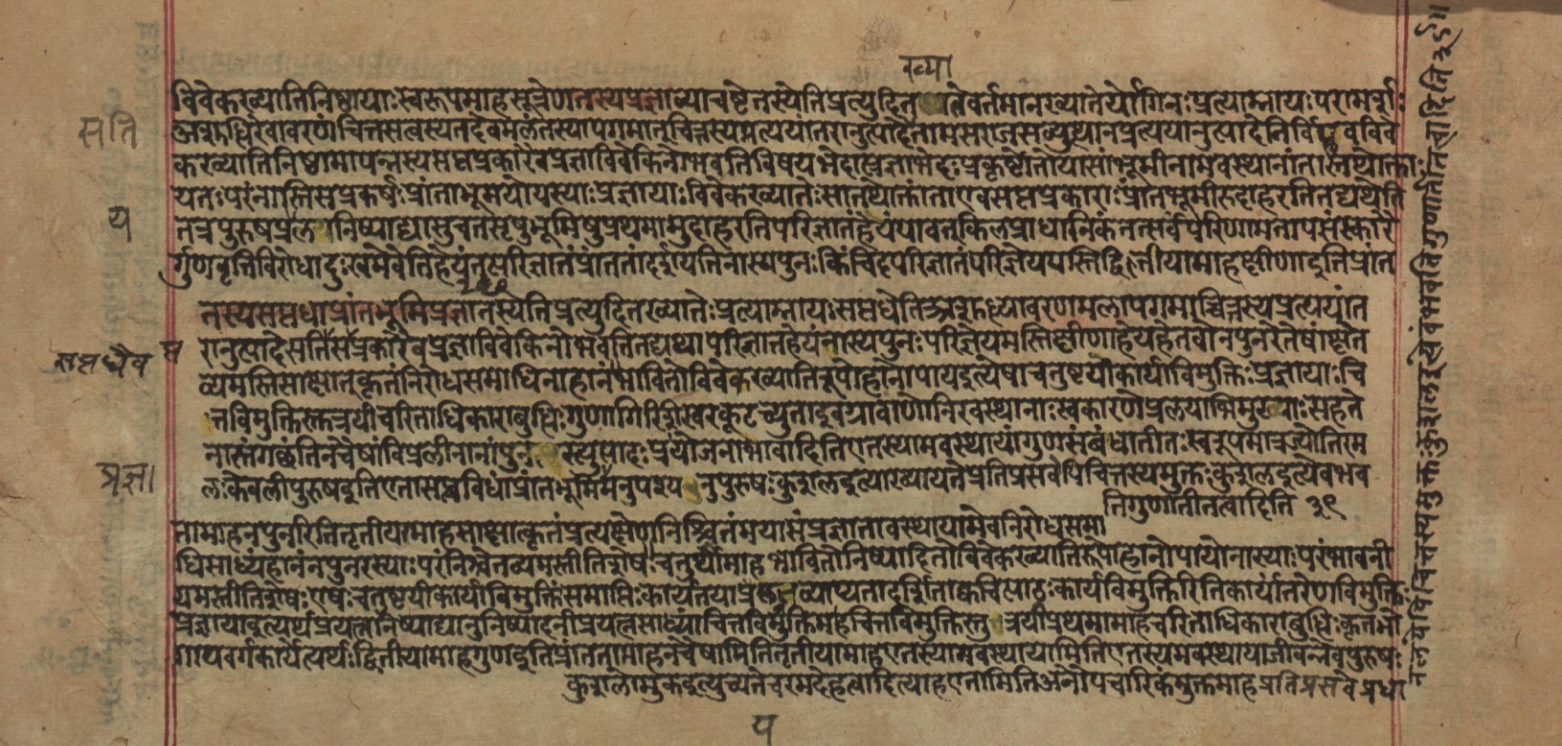 ख्या
विवेकख्यातिनिष्ठायाः स्वरूपमाहसूत्रेणतस्यप्रज्ञाव्याचष्टेतस्येतिप्रत्युदित वर्तमानख्यातेर्योगिनःप्रत्याम्नायःपरामर्शः
अशुद्धिरेवावरणंचित्तसत्वस्यतदेवमलंतस्यापगमात्चित्तस्यप्रत्ययांतरानुत्पादेतामसराजसव्युत्थानप्रत्ययानुत्पादेनिर्विप्लवविवे
सति
कख्यातिनिष्ठामापन्नस्यसप्तप्रकारैवप्रज्ञाविवेकिनोभवतिविषयभेदात्प्रज्ञाभेदःप्रकृष्टोंतोयासांभूमीनामवस्थानांतास्तथोक्ताः
यतःपरंनास्तिसप्रकर्षःप्रांताभूमयोयस्याःप्रज्ञायाःविवेकख्यातेःसातथोक्ताताएवसप्तप्रकाराःप्रांतभूमीरुदाहरतितद्यथेति
य
तत्रपुरुषप्रयत्ननिष्पाद्यासुचतसृषुभूमिषुप्रथमामुदाहरतिपरिज्ञातंहेयंयावतकिलप्राधानिकंतत्सर्वंपरिणामतापसंस्कारै
र्गुणवृत्तिविरोधादुःखमेवेतिहेयंतत्परिज्ञातंप्रांततांदर्शयतिनास्यपुनःकिंचिदपरिज्ञातंपरिज्ञेयमस्तिद्वितीयामाहक्षीणाइतिप्रांत
तस्यसप्तधाप्रांतभूमिप्रज्ञातस्येतिप्रत्युदितख्यातेःप्रत्याम्नायःसप्तधेतिअशुद्ध्यावरणमलापगमाच्चित्तस्यप्रत्ययांत
रानुत्पादेसतिसप्तप्रकारैवप्रज्ञाविवेकिनोभवतितद्यथापरिज्ञातंहेयंनास्यपुनःपरिज्ञेयमस्तिक्षीणाहेयहेतवोनपुनरेतेषांक्षेत
सप्तधैव
व्यमस्तिसाक्षात्कृतंनिरोधसमाधिनाहानंभावितोविवेकख्यातिरूपोहानोपायइत्येषाचतुष्टयीकार्याविमुक्तिःप्रज्ञायाःचि
त्तविमुक्तिस्तुत्रयीचरिताधिकाराबुद्धिःगुणागिरिशिखरकूटच्युताइवग्रावाणोनिरवस्थानाःस्वकारणेप्रलयाभिमुखाःसहते
नास्तंगच्छंतिनचैषांविप्रलीनानांपुनरस्त्युत्पादःप्रयोजनाभावादितिएतस्यामवस्थायांगुणसंबंधातीतःस्वरूपमात्रज्योतिरम
प्रज्ञा
लःकेवलीपुरुषइतिएतांसप्तविधांप्रांतभूमिमनुपश्यनुपुरुषःकुशलइत्याख्यायतेप्रतिप्रसवेपिचित्तस्यमुक्तःकुशलइत्येवभव
तिगुणातीतत्वादिति
नामाहनपुनरितितृतीयामाहसाक्षात्कृतंप्रत्यक्षेणनिश्चितंमयासंप्रज्ञातावस्थायामेवनिरोधसमा
धिसाध्यंहानंनपुनरस्याःपरंनिश्चेतव्यमस्तीतिशेषःचतुर्थीमाहभावितोनिष्पादितोविवेकख्यातिरूपोहानोपायोनास्याःपरंभावनी
यमस्तीतिशेषःएषःचतुष्टयीकार्याविमुक्तिःसमाप्तिःकार्यतयाप्रयत्नव्याप्यतादर्शिताक्वचित्पाठःकार्यविमुक्तिरितिकार्यांतरेणविमुक्तिः
प्रज्ञायाइत्यर्थःप्रयत्ननिष्पाद्यानुनिष्पादनीप्रयत्नसाध्यांचित्तविमुक्तिमाहचित्तविमुक्तिस्तु त्रयीप्रथमामाहचरिताधिकाराबुद्धिःकृतभो
गापवर्गकार्येत्यर्थःद्वितीयामाहगुणाइतिप्रांततामाहनचैषामितितृतीयामाहएतस्यामवस्थायामितिएतस्यामवस्थायांजीवन्नेवपुरुषः
कुशलोमुक्तइत्युच्यतेचरमदेहत्वादित्याहएतामितिअनौपचारिकंमुक्तमाहप्रतिप्रसवेप्रधा
नलयेपिचित्तस्यमुक्तःकुशलइत्येवंभवतिगुणातीतत्वादिति
प